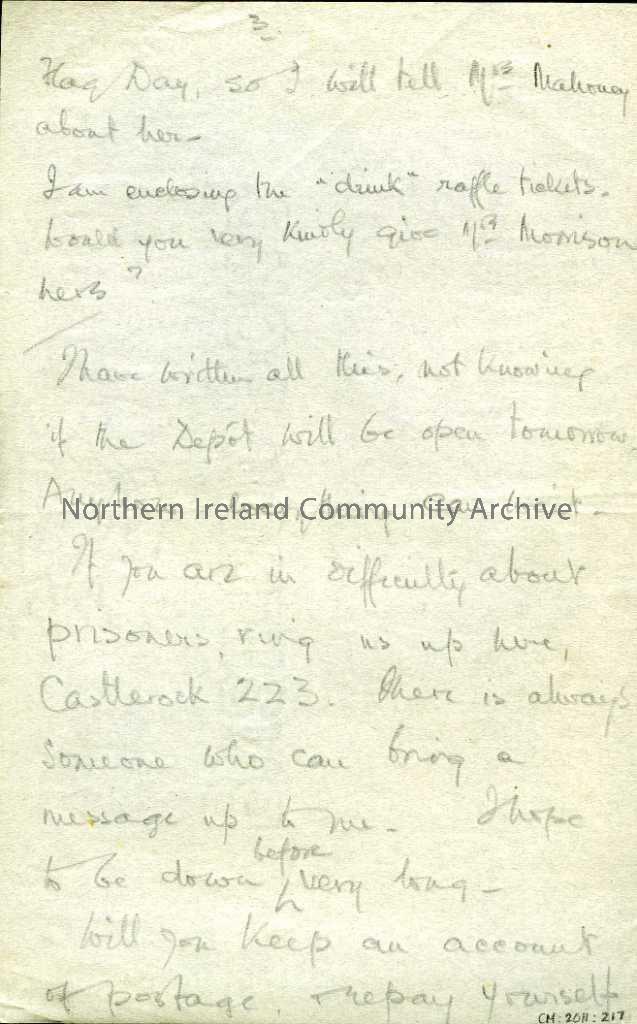 3.
Flag Day, so I will tell Mrs Mahoney
about her-
I am enclosing the "drink" raffle tickets.
Would you very kindly give Mrs Morrison
hers?
I have written all this, not knowing
if the Depôt will be open tomorrow.
Northern Ireland Community Archive
If you are in difficulty about
prisoners, ring us up here,
Castlerock 223. There is always
someone who can bring a
message up to me- I hope
before
to be down very long-
Will you keep an account
of postage, & repay yourself
CM:2011:217